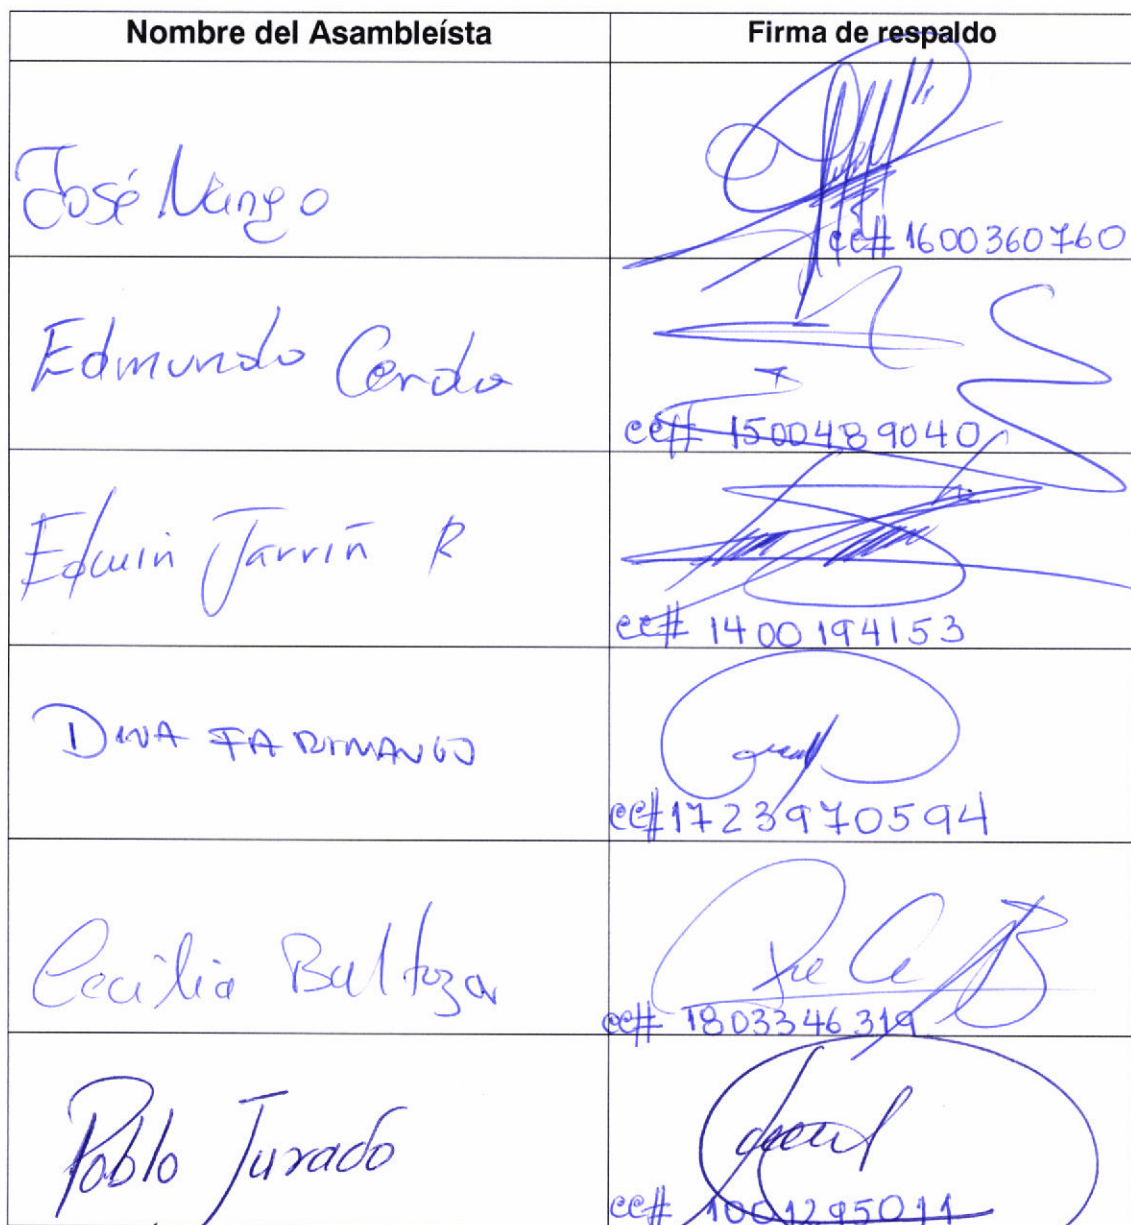 Nombre del Asambleísta Firma de respaldo
José Nango
cc# 1600360760
Edmundo Cerda
cc# 1500489040
Edwin Jarrín R
cc# 1400194153
DINA FARINANGO
cc# 1723970594
Cecilia Baltazar
cc# 1803346319
Pablo Jurado
cc# 1001295011